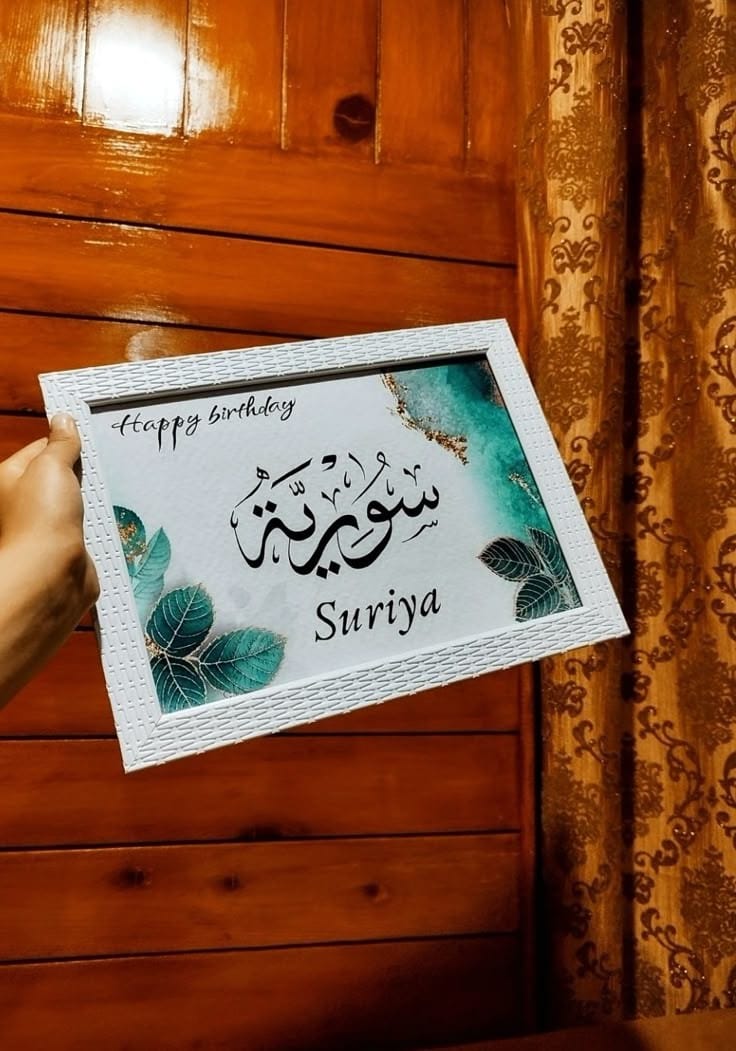 Happy birthday
سُورِيَّة
Suriya